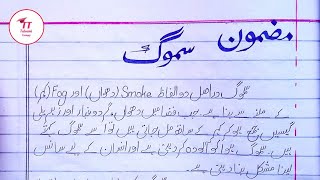 مضمون
سموگ
سموگ دراصل دو الفاظ Smoke (دھواں) اور Fog (کہر)
کے ملنے سے بنا ہے۔ جب فضا میں دھواں، گردوغبار اور زہریلی
گیسیں جمع ہو کر کہر کے ساتھ مل جاتی ہیں تو اسے سموگ کہتے
ہیں۔ سموگ ہوا کو آلودہ کر دیتی ہے اور انسان کے لیے سانس
لینا مشکل بنا دیتی ہے۔